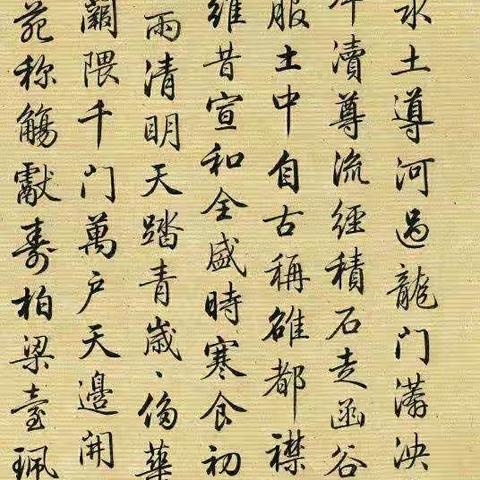 水土導河過龍門泱
瀆尊流經積石走函谷
服土中自古稱雒都襟
維昔宣和全盛時寒食初
雨清明天踏青歲〻
隈千門萬户天邊開
苑称觴獻壽柏梁臺珮